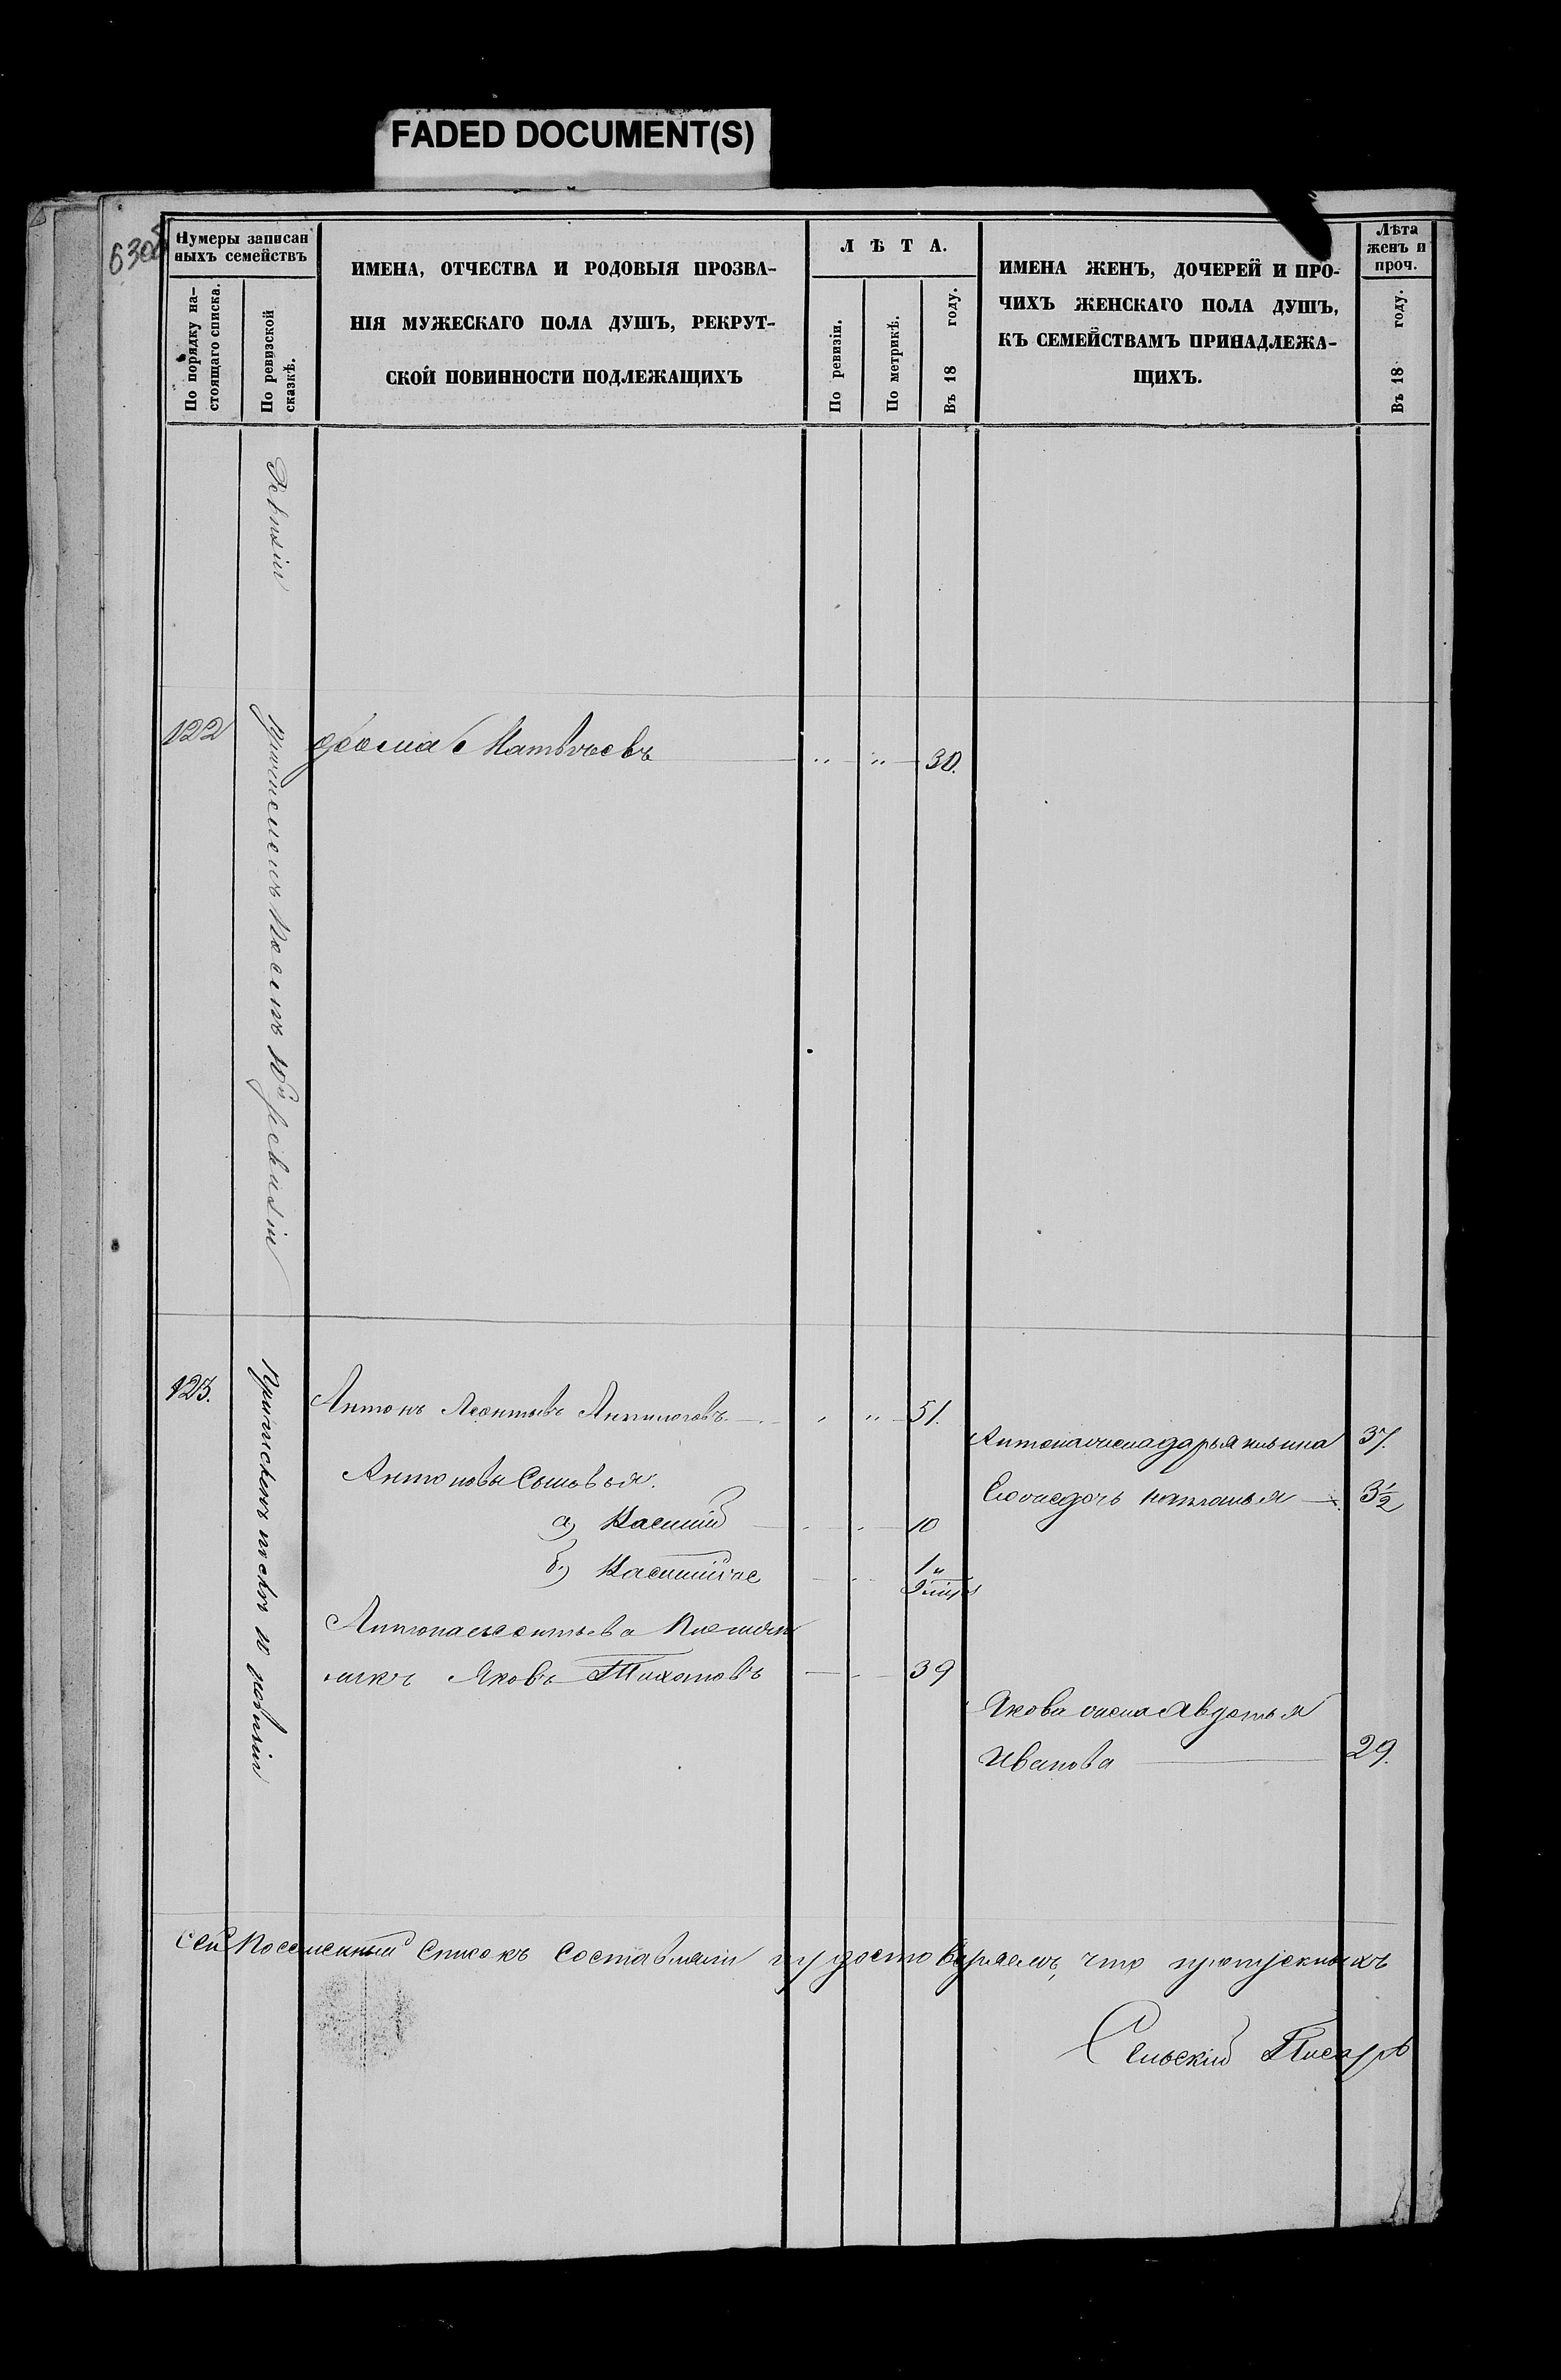 FADED DOCUMENT(S)
630б
Нумеры записан
ныхъ семействъ
По порядку на-
стоящаго списка.
По ревизской
сказкѣ.
ИМЕНА, ОТЧЕСТВА И РОДОВЫЯ ПРОЗВА-
НІЯ МУЖЕСКАГО ПОЛА ДУШЪ, РЕКРУТ-
СКОЙ ПОВИННОСТИ ПОДЛЕЖАЩИХЪ
ЛѢТА.
По ревизіи.
По метрикѣ.
Въ 18 году.
ИМЕНА ЖЕНЪ, ДОЧЕРЕЙ И ПРО-
ЧИХЪ ЖЕНСКАГО ПОЛА ДУШЪ,
КЪ СЕМЕЙСТВАМЪ ПРИНАДЛЕЖА-
ЩИХЪ.
Лѣта
женъ и
проч.
Въ 18 году.
Ревизіи
122
Причисленъ послѣ 10й ревизіи
Фома Матвѣевъ " " 30.
123.
Причисленъ послѣ 10 ревизіи
Антонъ Леонтьевъ " 51.
Антона жена Дарья 37.
Антоновы Сыновья.
Его же дочь Наталья 3½
а) Василій 10
б) Василій же 1"
Антона Леонтьева Племян
никъ Яковъ 39
Якова жена Авдотья
Иванова 29.
Сей Посемейный Списокъ составляли и удостовѣряемъ, что
Сельскій Писарь